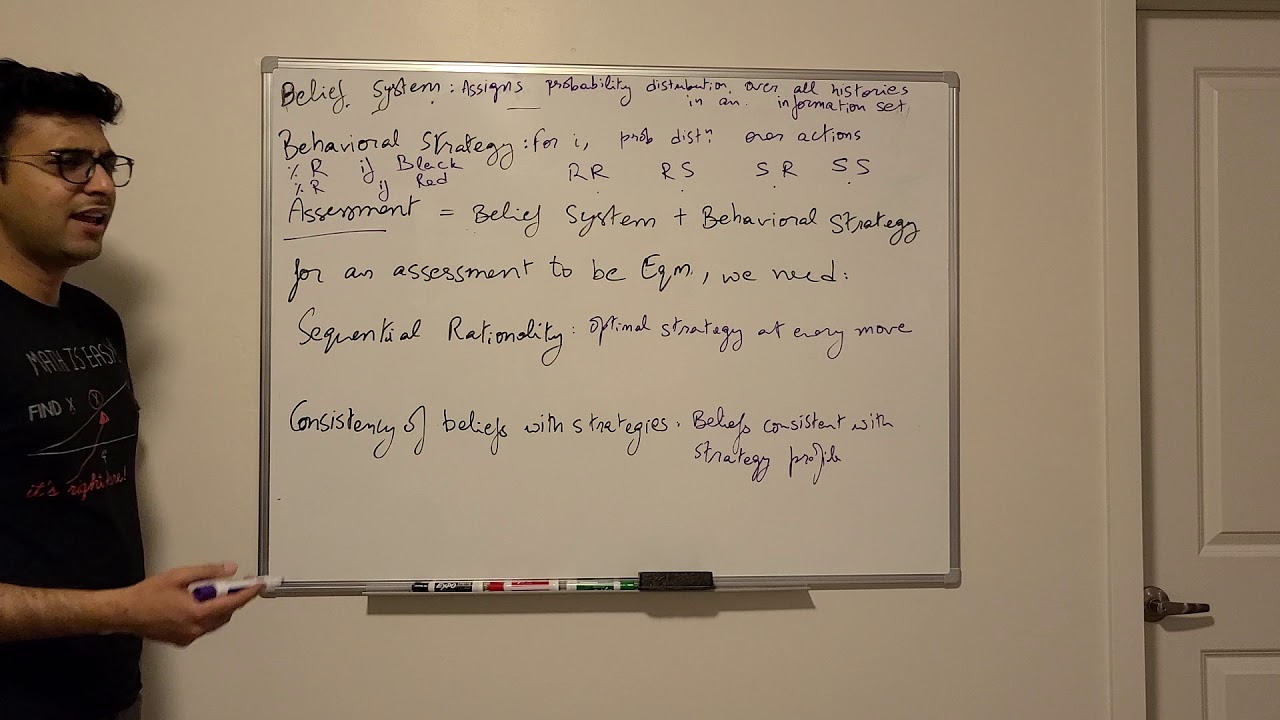 Belief System: Assigns probability distribution over all histories
in an information set
Behavioral Strategy: for i, prob distⁿ over actions
% R if Black RR RS SR SS
% R if Red
Assessment = Belief System + Behavioral Strategy
for an assessment to be Eqm, we need:
Sequential Rationality: optimal strategy at every move
Consistency of beliefs with strategies. Beliefs consistent with
strategy profile
MATH IS EASY!
FIND X
Y
it's right here!
EXPO